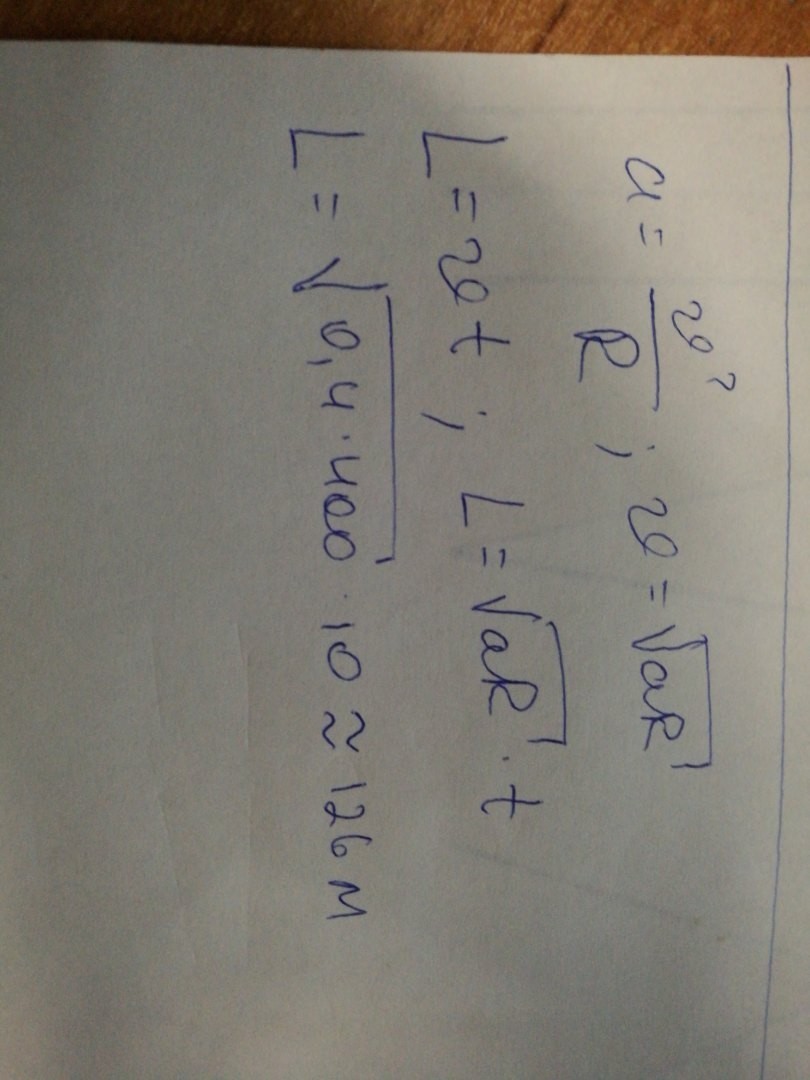 a = v²/R ; v = √aR
L = vt ; L = √aR · t
L = √0,4·400 · 10 ≈ 126 м